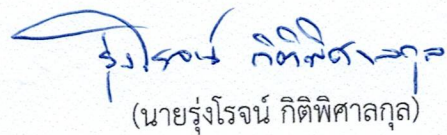 รุ่งโรจน์ กิติพิศาลกุล
(นายรุ่งโรจน์ กิติพิศาลกุล)